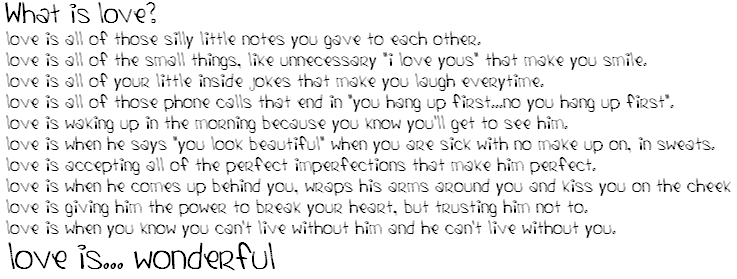 What is love?
love is all of those silly little notes you gave to each other.
love is all of the small things, like unnecessary "i love yous" that make you smile.
love is all of your little inside jokes that make you laugh everytime.
love is all of those phone calls that end in "you hang up first...no you hang up first".
love is waking up in the morning because you know you'll get to see him.
love is when he says "you look beautiful" when you are sick with no make up on, in sweats.
love is accepting all of the perfect imperfections that make him perfect.
love is when he comes up behind you, wraps his arms around you and kiss you on the cheek
love is giving him the power to break your heart, but trusting him not to.
love is when you know you can't live without him and he can't live without you.
love is... wonderful